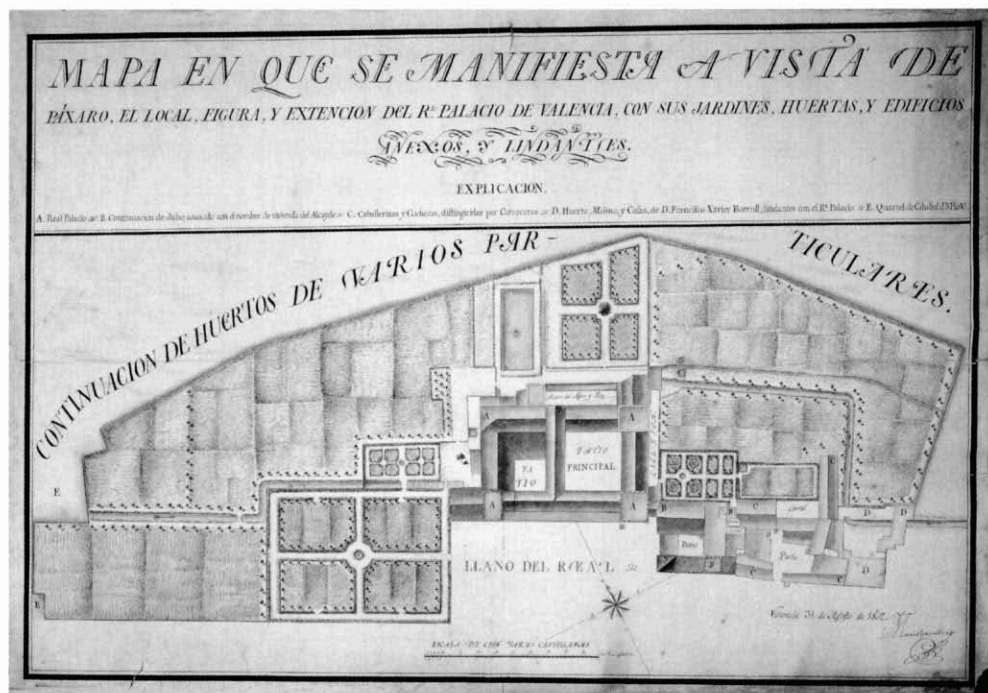 MAPA EN QUE SE MANIFIESTA A VISTA DE
PÁXARO, EL LOCAL, FIGURA, Y EXTENCION DEL Rl. PALACIO DE VALENCIA, CON SUS JARDINES, HUERTAS, Y EDIFICIOS
ANEXOS, Y LINDANTES.
EXPLICACION.
A. Real Palacio B. Continuacion de dicho, conocido con el nombre de vivienda del Alcayde C. Caballerizas y Cocheras, distinguidas por Carroceras D. Huerto, Molino, y Casas, de D. Francisco Xavier Borrull, lindantes con el Rl. Palacio E. Quartel de
CONTINUACION DE HUERTOS DE VARIOS PAR-
TICULARES.
A
A
PATIO
PATIO
PRINCIPAL
A
A
E
E
B
B
C
Corral
D
D
Patio
Patio
B
C
C
D
LLANO DEL REAL
Valencia 31 de Agosto de
ESCALA DE CIEN VARAS CASTELLANAS